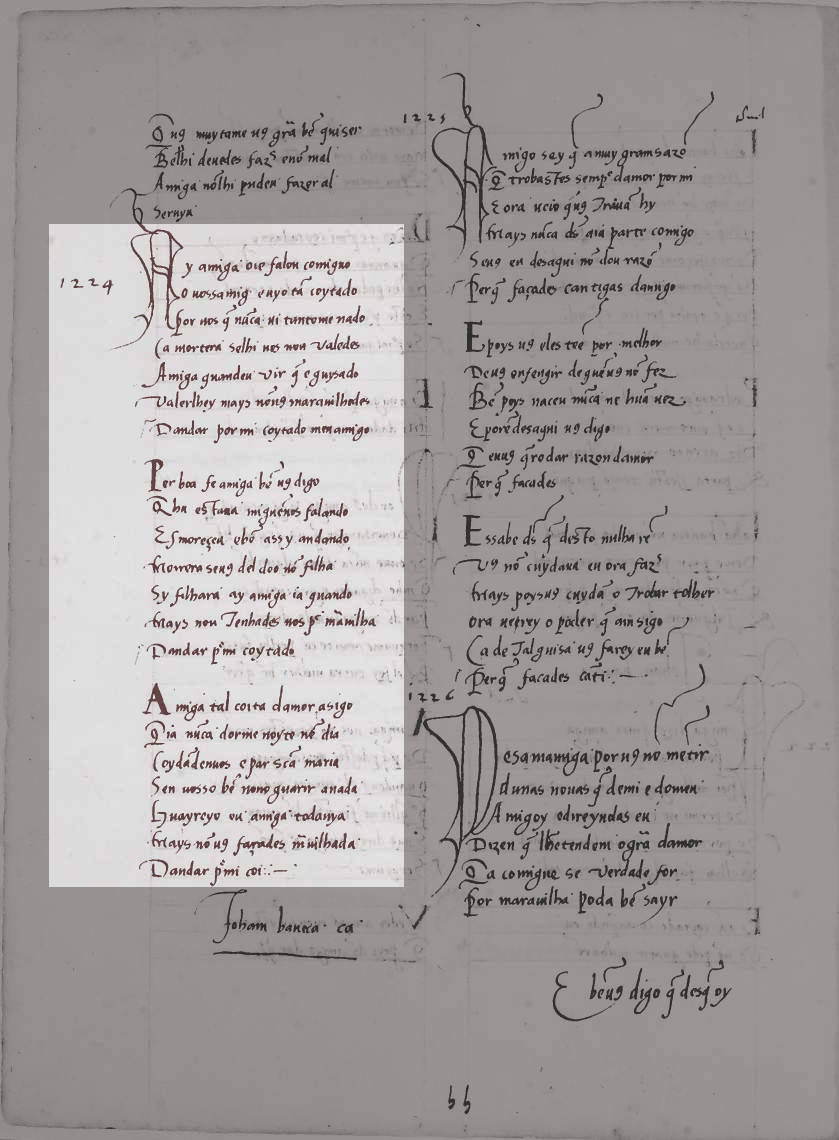 Q̃ uꝯ muytame uꝯ grã bẽ quiser
Bẽlhi deuedes faz̃ enõ mal
Amiga nõlhi puden fazer al
Seruya
1224
Ay amiga oie falou comigno
O uossamig̃ euyo tã coytado
Por uos q̃ nũca ui tantome nado
Ca morrera selhi uos non valedes
Amiga quandeu vir q̃ e guysado
Valerlhey mays nõuꝯ marauilhedes
Dandar por mi coytado meuamigo
Per boa fe amiga bẽ uꝯ digo
Q̃hu estaua migueuos falando
Esmoreçeu ebẽ assy andando
Morrera seuꝯ del doo nõ filha
Sy filhara ay amiga ia quando
Mays non Tenhades uos p̃ m̃auilha
Dandar p̃mi coytado
Amiga tal coita damor a sigo
Q̃ia nũca dorme noyte nẽ dia
Coydãdenuos e par scã maria
Sen uosso bẽ nono guarir a nada
Guareyo eu amiga todauya
Mays nõ uꝯ façades m̃uilhada
Dandar p̃mi coi:—
Joham baueca ca
1225
Amigo sey q̃ a muy gram sazõ
Q̃ trobastes semp̃ damor por mi
E ora ueio q̃uꝯ Trauã hy
Mays nũca d̃s aia parte comigo
Seuꝯ eu desaqui nõ dou razõ
Perq̃ façades cantigas damigo
E poys uꝯ eles teẽ por melhor
Deuꝯ enfengir de quẽ uꝯ nõ fez
Bẽ poys naceu nũca nẽ hũa uez
E porẽ desaqui uꝯ digo
Q̃ euuꝯ q̃ro dar razon damor
Perq̃ facades
E ssabe d̃s q̃ desto nulha rẽ
Vꝯ nõ cuydaua eu ora faz̃
Mays poysuꝯ cuydã o Trobar tolher
ora ueerey o poder q̃ an sigo
Ca de Talguisa uꝯ farey eu bẽ
Perq̃ facades cãti:—
1226
Pesamamiga por uꝯ nõ mẽtir
Dunas nouas q̃ demi e domeu
Amigoy odireyuolas eu
Dizen q̃ lhentendem o grã damor
Q̃a comigue se verdade for
Por marauilha poda bẽ sayr
E bẽuꝯ digo q̃ desq̃ oy